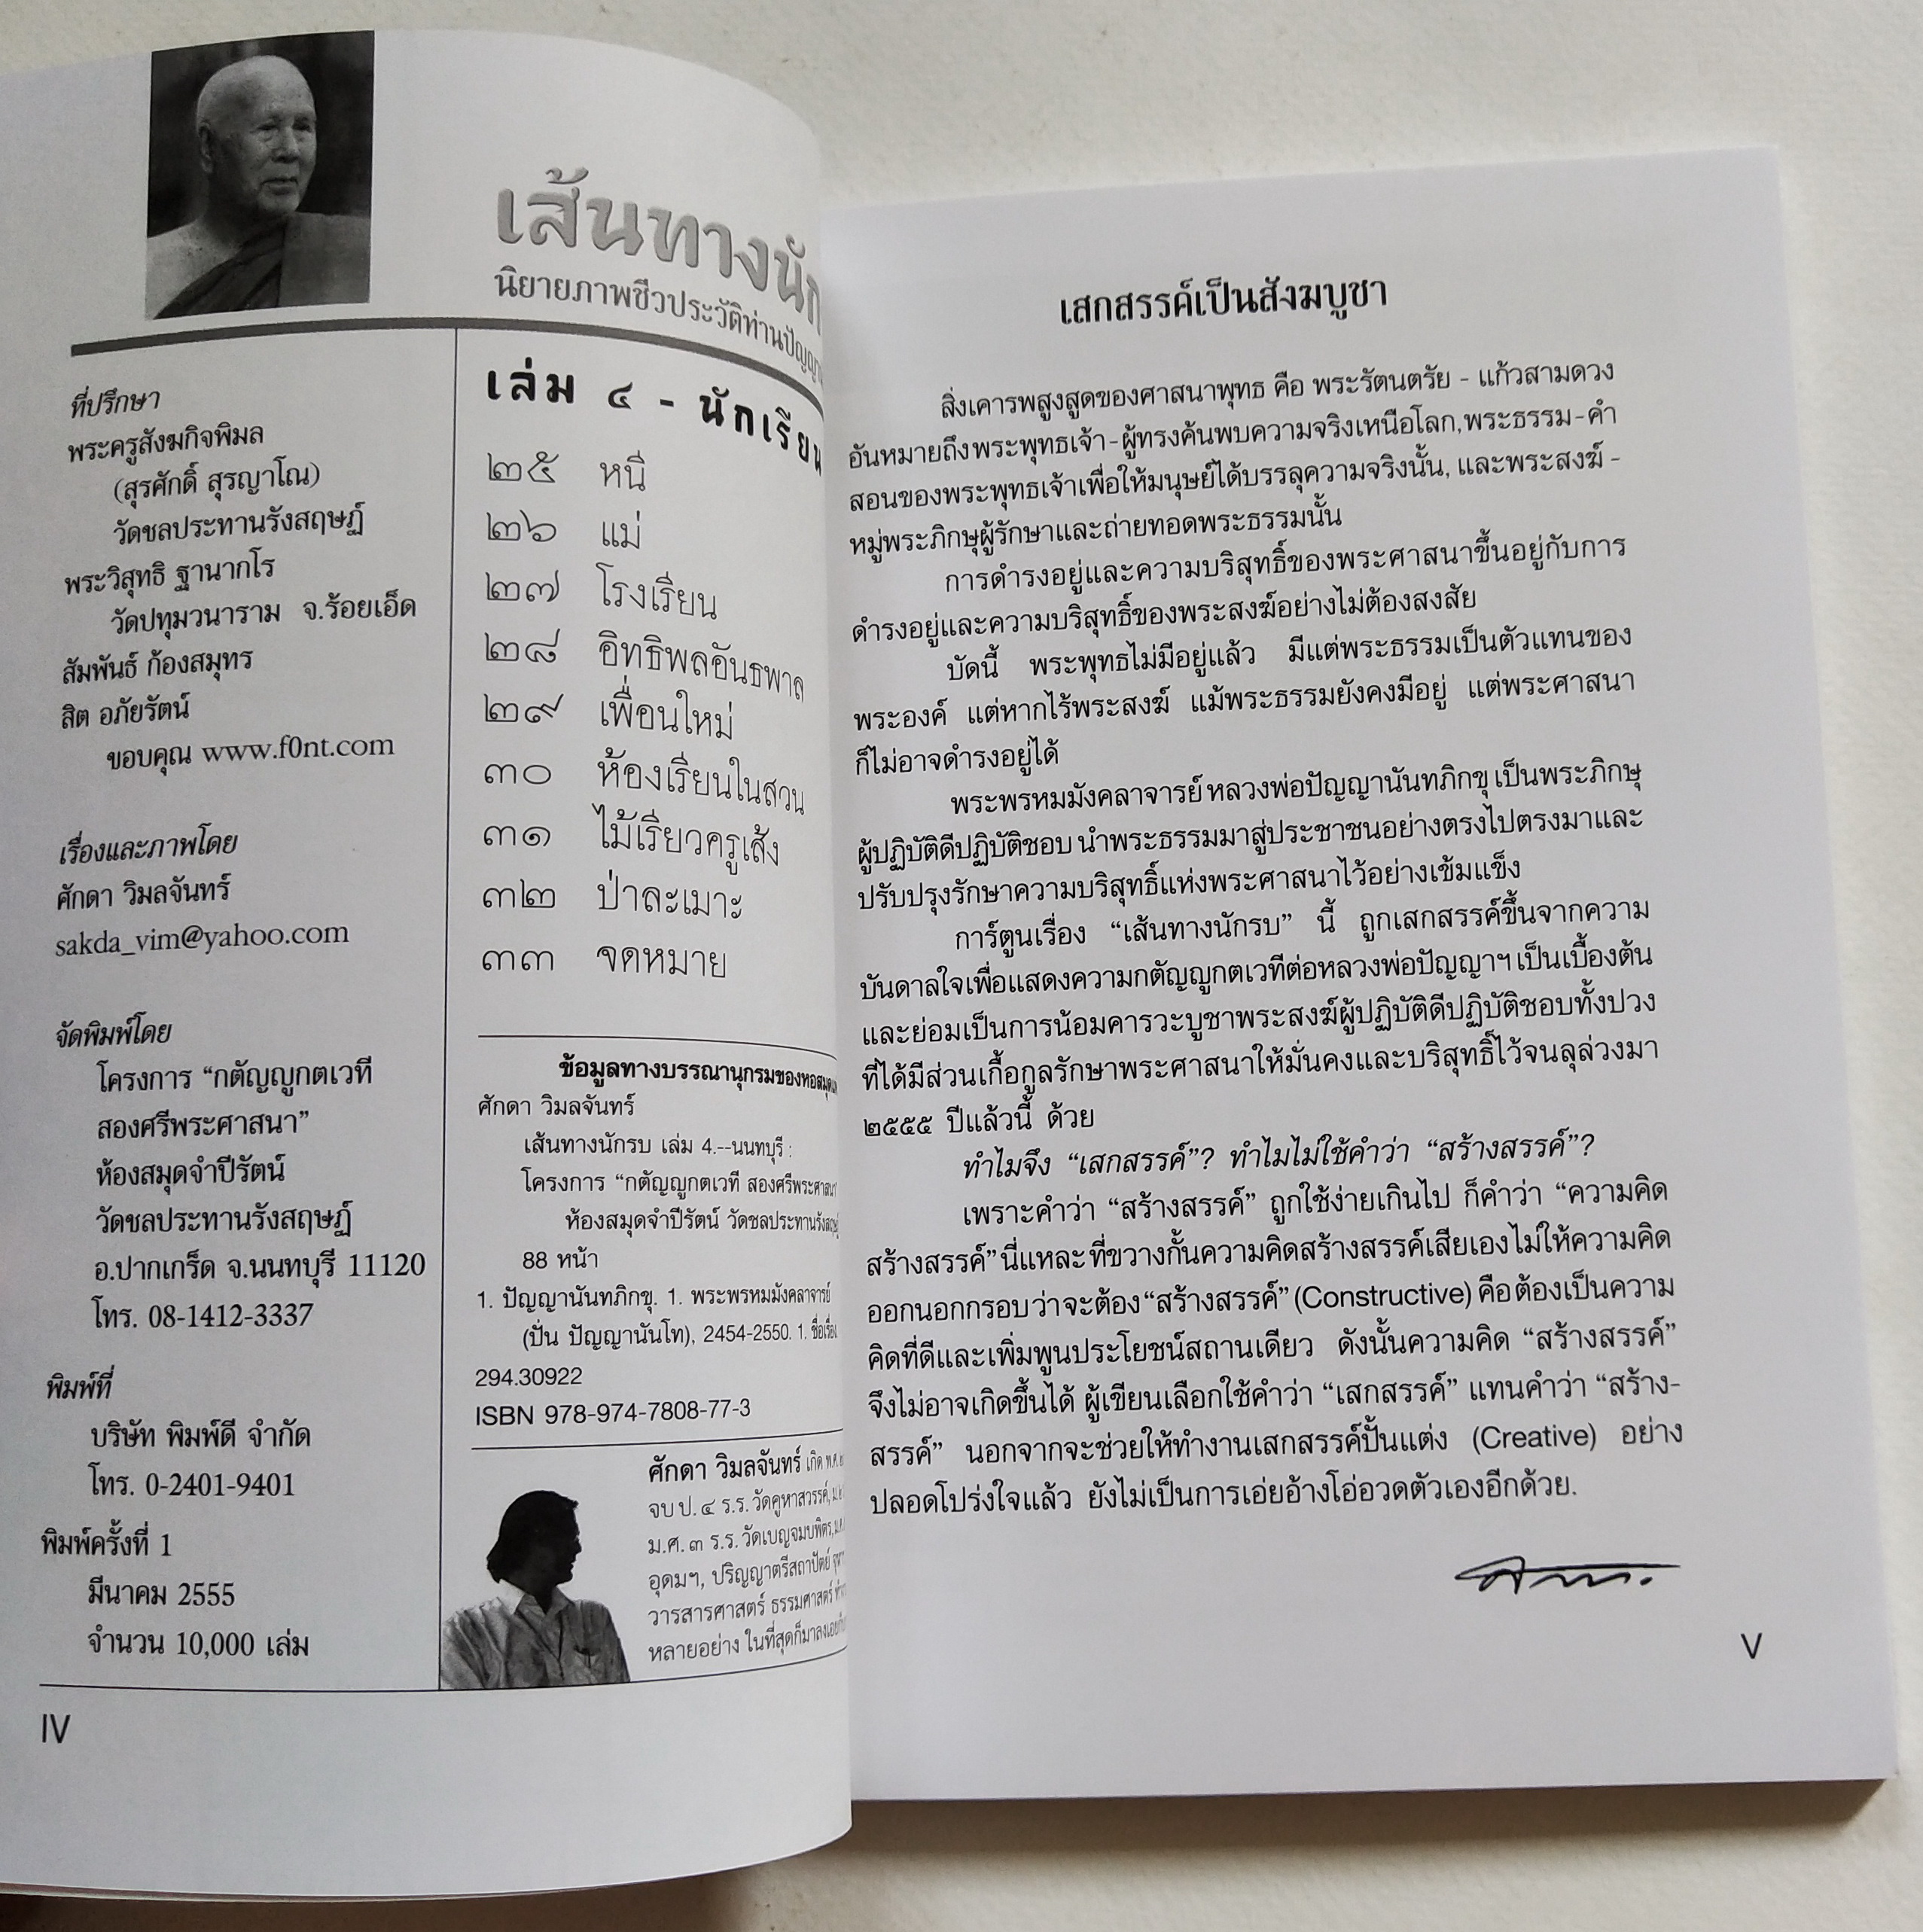 เส้นทางนัก
นิยายภาพชีวประวัติท่านปัญญา
ที่ปรึกษา
พระครูสังฆกิจพิมล
(สุรศักดิ์ สุรญาโณ)
วัดชลประทานรังสฤษฏ์
พระวิสุทธิ ฐานากโร
วัดปทุมวนาราม จ.ร้อยเอ็ด
สัมพันธ์ ก้องสมุทร
สิต อภัยรัตน์
ขอบคุณ www.f0nt.com
เรื่องและภาพโดย
ศักดา วิมลจันทร์
sakda_vim@yahoo.com
จัดพิมพ์โดย
โครงการ “กตัญญูกตเวที
สองศรีพระศาสนา”
ห้องสมุดจำปีรัตน์
วัดชลประทานรังสฤษฏ์
อ.ปากเกร็ด จ.นนทบุรี 11120
โทร. 08-1412-3337
พิมพ์ที่
บริษัท พิมพ์ดี จำกัด
โทร. 0-2401-9401
พิมพ์ครั้งที่ 1
มีนาคม 2555
จำนวน 10,000 เล่ม
IV
เล่ม ๔ - นักเรียน
๒๕ หนี
๒๖ แม่
๒๗ โรงเรียน
๒๘ อิทธิพลอันธพาล
๒๙ เพื่อนใหม่
๓๐ ห้องเรียนในสวน
๓๑ ไม้เรียวครูเส้ง
๓๒ ป่าละเมาะ
๓๓ จดหมาย
ข้อมูลทางบรรณานุกรมของหอสมุด
ศักดา วิมลจันทร์
เส้นทางนักรบ เล่ม 4.--นนทบุรี :
โครงการ “กตัญญูกตเวที สองศรีพระศาสนา
ห้องสมุดจำปีรัตน์ วัดชลประทานรังสฤษฏ์
88 หน้า
1. ปัญญานันทภิกขุ. 1. พระพรหมมังคลาจารย์
(ปั่น ปัญญานันโท), 2454-2550. 1. ชื่อเรื่อง
294.30922
ISBN 978-974-7808-77-3
ศักดา วิมลจันทร์ เกิด พ.ศ.
จบ ป. ๔ ร.ร. วัดคูหาสวรรค์,
ม.ศ. ๓ ร.ร. วัดเบญจมบพิตร,
อุดมฯ, ปริญญาตรีสถาปัตย์
วารสารศาสตร์ ธรรมศาสตร์
หลายอย่าง ในที่สุดก็มาลงเอย
เสกสรรค์เป็นสังฆบูชา
สิ่งเคารพสูงสูดของศาสนาพุทธ คือ พระรัตนตรัย - แก้วสามดวง
อันหมายถึงพระพุทธเจ้า-ผู้ทรงค้นพบความจริงเหนือโลก, พระธรรม-คำ
สอนของพระพุทธเจ้าเพื่อให้มนุษย์ได้บรรลุความจริงนั้น, และพระสงฆ์ -
หมู่พระภิกษุผู้รักษาและถ่ายทอดพระธรรมนั้น
การดำรงอยู่และความบริสุทธิ์ของพระศาสนาขึ้นอยู่กับการ
ดำรงอยู่และความบริสุทธิ์ของพระสงฆ์อย่างไม่ต้องสงสัย
บัดนี้ พระพุทธไม่มีอยู่แล้ว มีแต่พระธรรมเป็นตัวแทนของ
พระองค์ แต่หากไร้พระสงฆ์ แม้พระธรรมยังคงมีอยู่ แต่พระศาสนา
ก็ไม่อาจดำรงอยู่ได้
พระพรหมมังคลาจารย์ หลวงพ่อปัญญานันทภิกขุ เป็นพระภิกษุ
ผู้ปฏิบัติดีปฏิบัติชอบ นำพระธรรมมาสู่ประชาชนอย่างตรงไปตรงมาและ
ปรับปรุงรักษาความบริสุทธิ์แห่งพระศาสนาไว้อย่างเข้มแข็ง
การ์ตูนเรื่อง “เส้นทางนักรบ” นี้ ถูกเสกสรรค์ขึ้นจากความ
บันดาลใจเพื่อแสดงความกตัญญูกตเวทีต่อหลวงพ่อปัญญาฯ เป็นเบื้องต้น
และย่อมเป็นการน้อมคารวะบูชาพระสงฆ์ผู้ปฏิบัติดีปฏิบัติชอบทั้งปวง
ที่ได้มีส่วนเกื้อกูลรักษาพระศาสนาให้มั่นคงและบริสุทธิ์ไว้จนลุล่วงมา
๒๕๕๕ ปีแล้วนี้ ด้วย
ทำไมจึง “เสกสรรค์”? ทำไมไม่ใช้คำว่า “สร้างสรรค์”?
เพราะคำว่า “สร้างสรรค์” ถูกใช้ง่ายเกินไป ก็คำว่า “ความคิด
สร้างสรรค์” นี่แหละที่ขวางกั้นความคิดสร้างสรรค์เสียเองไม่ให้ความคิด
ออกนอกกรอบ ว่าจะต้อง “สร้างสรรค์” (Constructive) คือ ต้องเป็นความ
คิดที่ดีและเพิ่มพูนประโยชน์สถานเดียว ดังนั้นความคิด “สร้างสรรค์”
จึงไม่อาจเกิดขึ้นได้ ผู้เขียนเลือกใช้คำว่า “เสกสรรค์” แทนคำว่า “สร้าง-
สรรค์” นอกจากจะช่วยให้ทำงานเสกสรรค์ปั้นแต่ง (Creative) อย่าง
ปลอดโปร่งใจแล้ว ยังไม่เป็นการเอ่ยอ้างโอ่อวดตัวเองอีกด้วย.
V